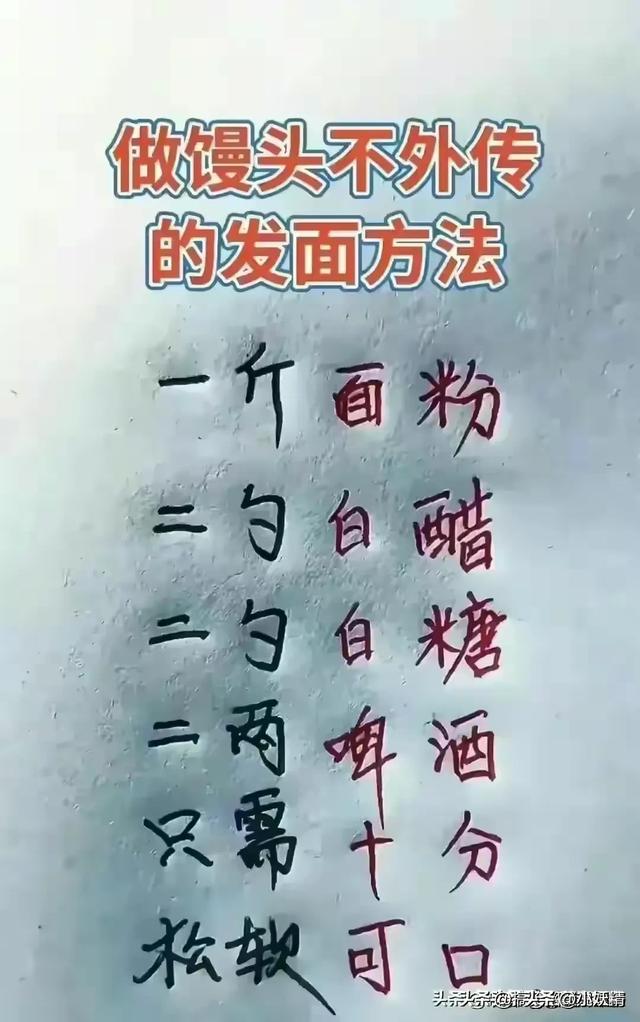 做馒头不外传
的发面方法
一斤面粉
二勺白醋
二勺白糖
二两啤酒
只需十分
松软可口